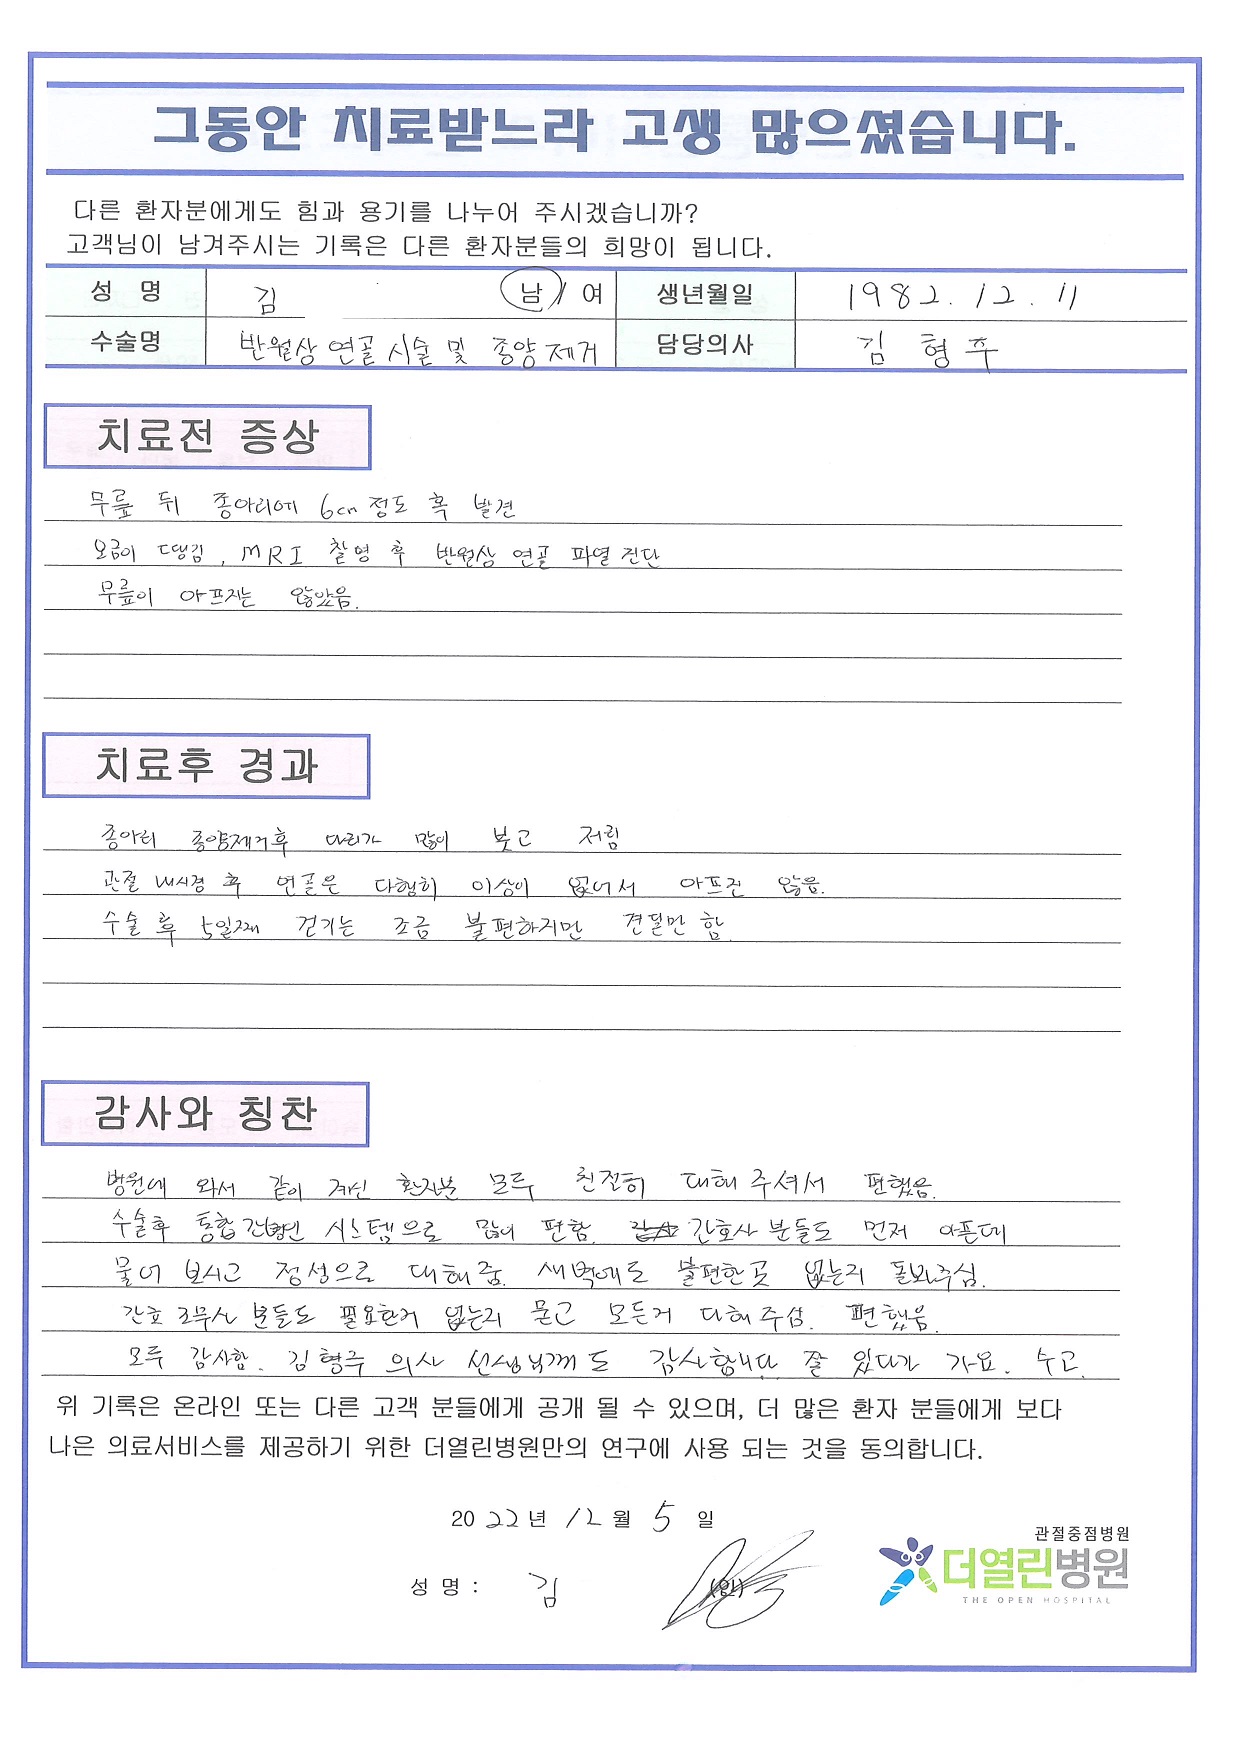 그동안 치료받느라 고생 많으셨습니다.
다른 환자분에게도 힘과 용기를 나누어 주시겠습니까?
고객님이 남겨주시는 기록은 다른 환자분들의 희망이 됩니다.
성 명 김 남 / 여 생년월일 1982. 12. 11
수술명 반월상 연골 시술 및 종양 제거 담당의사 김 형주
치료전 증상
무릎 뒤 종아리에 6cm 정도 혹 발견
오금이 땡김, MRI 촬영 후 반월상 연골 파열 진단
무릎이 아프지는 않았음.
치료후 경과
종아리 종양제거후 다리가 많이 붓고 저림
관절 내시경 후 연골은 다행히 이상이 없어서 아프진 않음.
수술 후 5일째 걷기는 조금 불편하지만 견딜만 함.
감사와 칭찬
병원에 와서 같이 계신 환자분 모두 친절히 대해 주셔서 편했음.
수술후 통합간병인 시스템으로 많이 편함. 간호사 분들도 먼저 아픈데
물어 보시고 정성으로 대해줌. 새벽에도 불편한 곳 없는지 돌봐주심.
간호 조무사 분들도 필요한거 없는지 묻고 모든거 다해주심. 편했음.
모두 감사함. 김형주 의사 선생님께도 감사합니다. 잘 있다가 가요. 수고.
위 기록은 온라인 또는 다른 고객 분들에게 공개 될 수 있으며, 더 많은 환자 분들에게 보다
나은 의료서비스를 제공하기 위한 더열린병원만의 연구에 사용 되는 것을 동의합니다.
2022년 12월 5일
성 명 : 김 (인)
관절중점병원
더열린병원
THE OPEN HOSPITAL